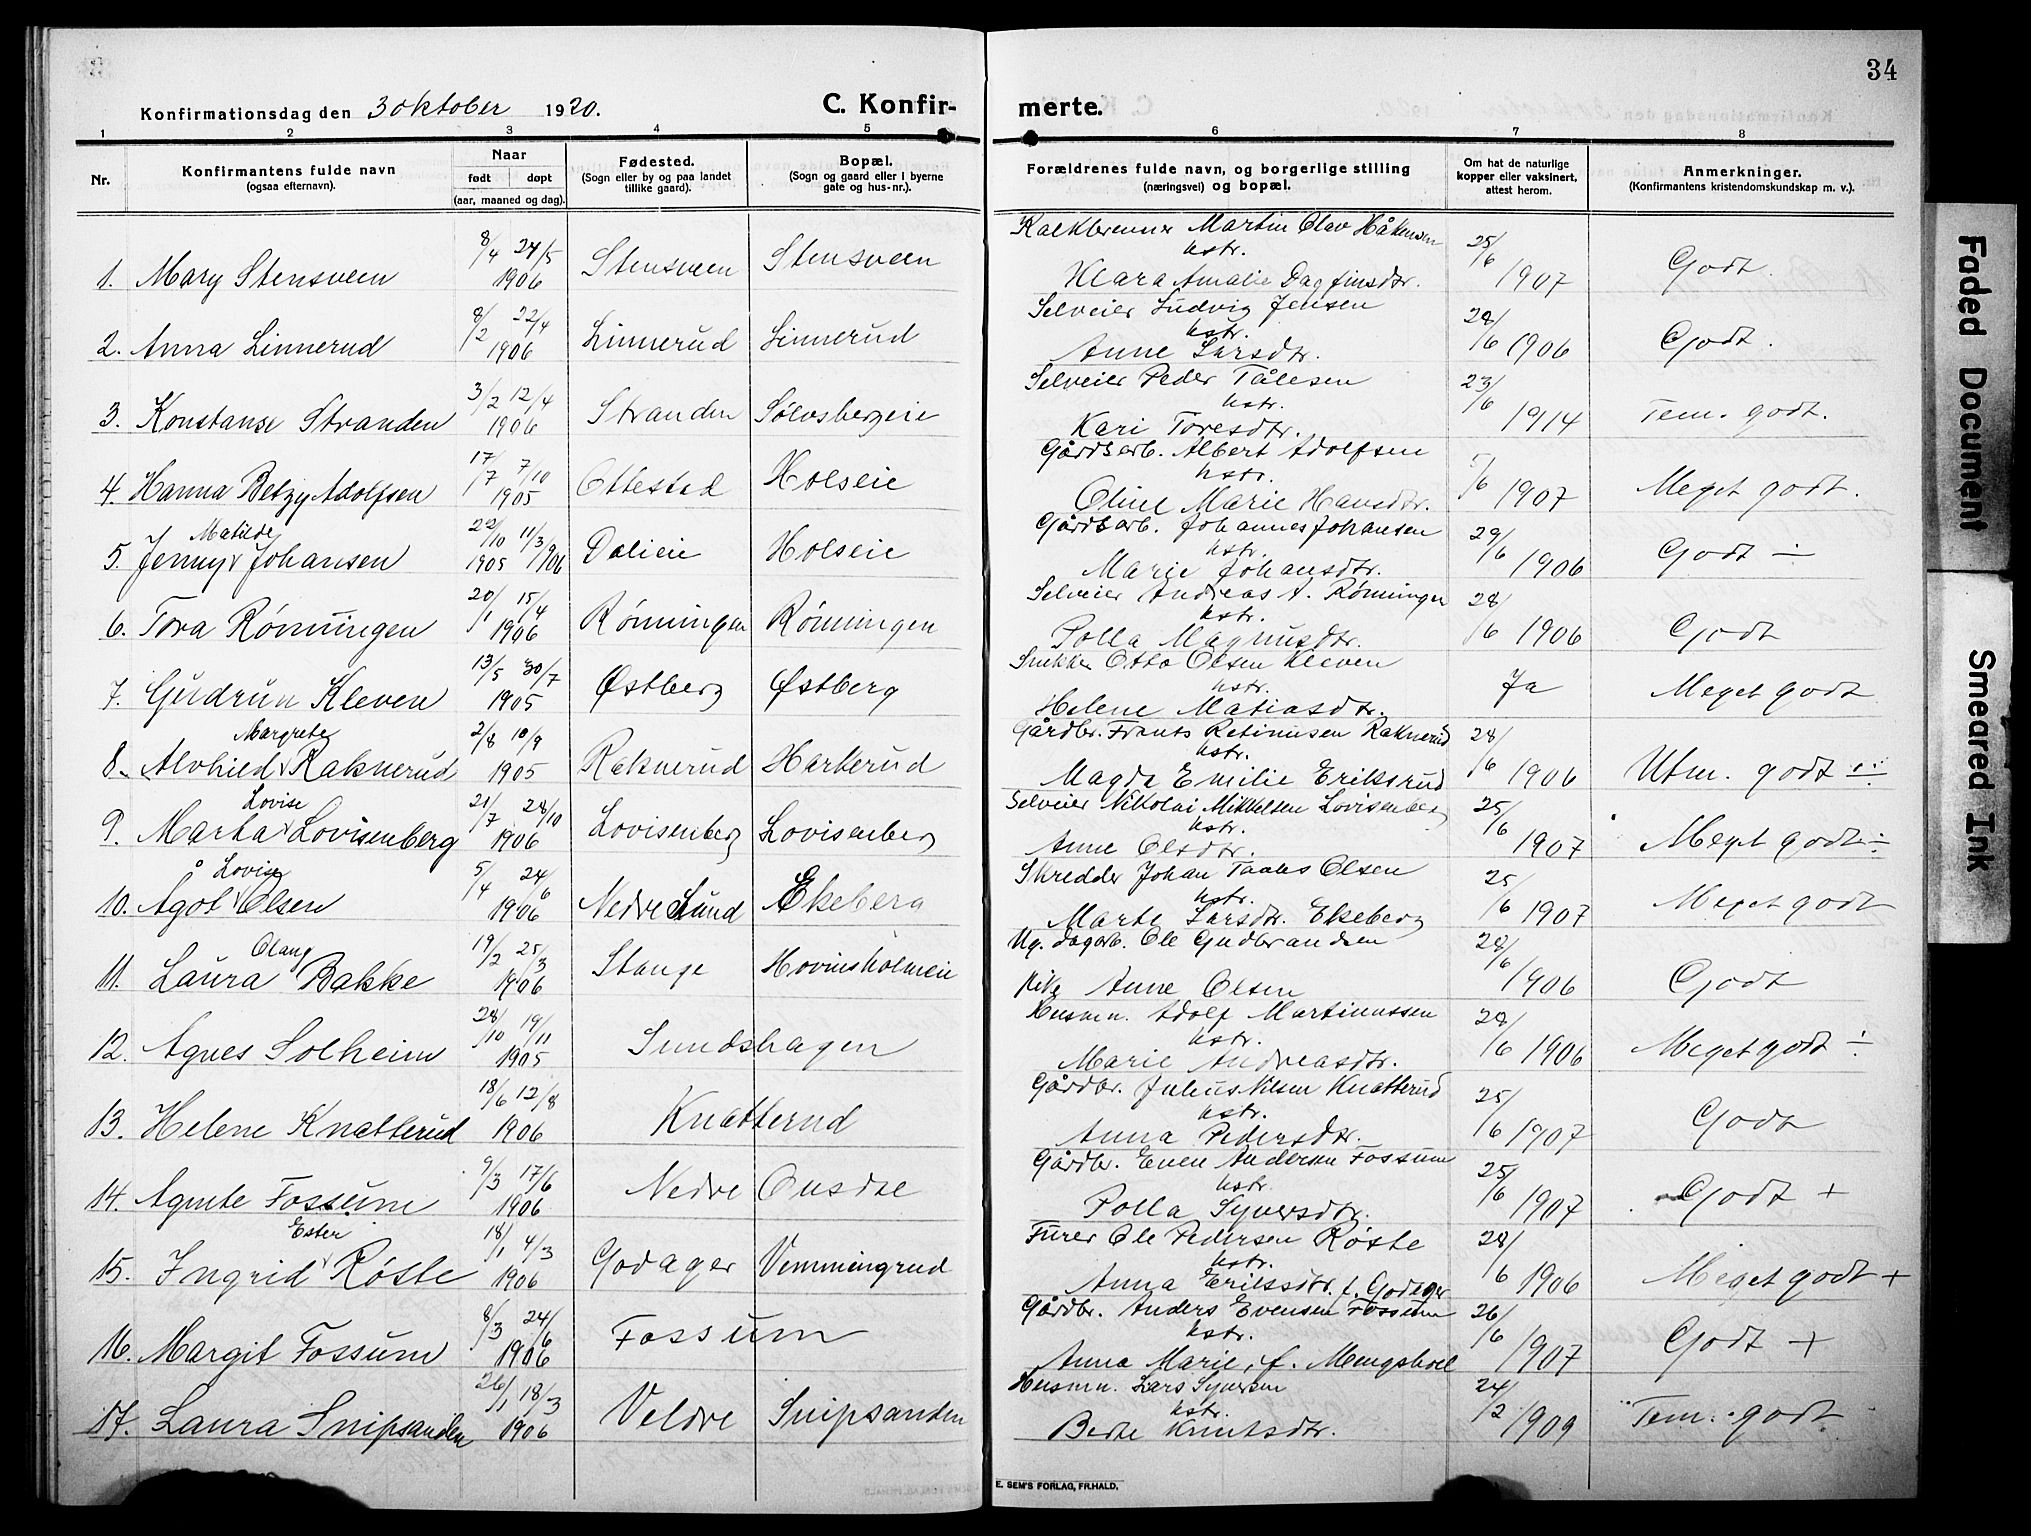 34
Konfirmationsdag den 3 oktober 1920.
C. Konfir-
merte.
1 2 3 4 5 6 7 8
Nr.
Konfirmantens fulde navn
(ogsaa efternavn).
Naar
født døpt
(aar, maaned og dag).
Fødested.
(Sogn eller by og paa landet
tillike gaard).
Bopæl.
(Sogn og gaard eller i byerne
gate og hus-nr.).
Forældrenes fulde navn, og borgerlige stilling
(næringsvei) og bopæl.
Om hat de naturlige
kopper eller vaksinert,
attest herom.
Anmerkninger.
(Konfirmantens kristendomskundskap m. v.).
1. Mary Stensveen 8/4 24/5 1906 Stensveen Stensveen
Martin Olav Håkensen
hstr.
Klara Amalie Dagfinsdtr. 25/6 1907 Godt.
2. Anna Linnerud 8/2 22/4 1906 Linnerud Linnerud
Selveier Ludvig Jensen
hstr.
Anne Larsdtr. 28/6 1906 Godt.
3. Konstanse Stranden 3/2 12/4 1906 Stranden Sølvsbergeie
Selveier Peder Tålesen
hstr.
Kari Toresdtr. 23/6 1914 Tem. godt.
4. Hanna Betzy Adolfsen 17/7 7/10 1905 Ottestad Holseie
Gårdsarb. Albert Adolfsen
hstr.
Oline Marie Hansdtr. /6 1907 Meget godt.
Matilde
5. Jenny v Johansen 22/10 1905 11/3 1906 Dalieie Holseie
Gårdsarb. Johannes Johansen
hstr.
Marie Johansdtr. 29/6 1906 Godt ÷
6. Tora Rønningen 20/1 15/4 1906 Rønningen Rønningen
Selveier Andreas A. Rønningen
hstr.
Polla Magnusdtr. 28/6 1906 Godt
7. Gudrun Kleven 13/5 30/7 1905 Østberg Østberg
Snikker Otto Olsen Kleven
hstr.
Helene Matiasdtr. Ja Meget godt
Margrete
8. Alvhild v Raknerud 2/8 10/9 1905 Raknerud Harkerud
Gårdbr. Frants Retinusen Raknerud
hstr.
Magda Emilie Eriksrud 28/6 1906 Utm. godt ÷
Lovise
9. Marta v Lovisenberg 21/7 28/10 1906 Lovisenberg Lovisenberg
Selveier Nikolai Mikkelsen Lovisenberg
hstr.
Anne Olsdtr. 25/6 1907 Meget godt ÷
Lovise
10. Ågot v Olsen 5/4 24/6 1906 Nedre Lund Ekeberg
Skredder Johan Olsen
hstr.
Marte Larsdtr. Ekeberg 25/6 1907 Meget godt
Olaug
11. Laura Bakke 19/2 25/3 1906 Stange Hovinsholmeie
Ug. dagarb. Ole Gudbrandsen
Pike Anne Olsen 28/6 1906 Godt
12. Agnes Solheim 28/10 19/11 1905 Sundshagen
Husmn. Adolf Martinussen
hstr.
Marie Andreasdtr. 28/6 1906 Meget godt ÷
13. Helene Knatterud 18/6 12/8 1906 Knatterud
Gårdbr. Julius Nilsen Knatterud
hstr.
Anna Pedersdtr. 25/6 1907 Godt
14. Agnete Fossum 9/3 17/6 1906 Nedre Ousdal
Gårdbr. Even Andersen Fossum
hstr.
Polla Syversdtr. 25/6 1907 Godt +
Ester
15. Ingrid v Røste 18/1 4/3 1906 Godager Vemmingrud
Furer Ole Pedersen Røste
hstr.
Anna Eriksdtr. f. Godager 28/6 1906 Meget godt +
16. Margit Fossum 8/3 24/6 1906 Fossum
Gårdbr. Anders Evensen Fossum
hstr.
Anna Marie, f. Mengshoel 26/6 1907 Godt +
17. Laura Snipsanden 26/1 18/3 1906 Veldre Snipsanden
Husmn. Lars Syversen
hstr.
Berte Knutsdtr. 24/2 1909 Tem. godt
E. SEM'S FORLAG, FR.HALD.
Faded Document
Smeared Ink